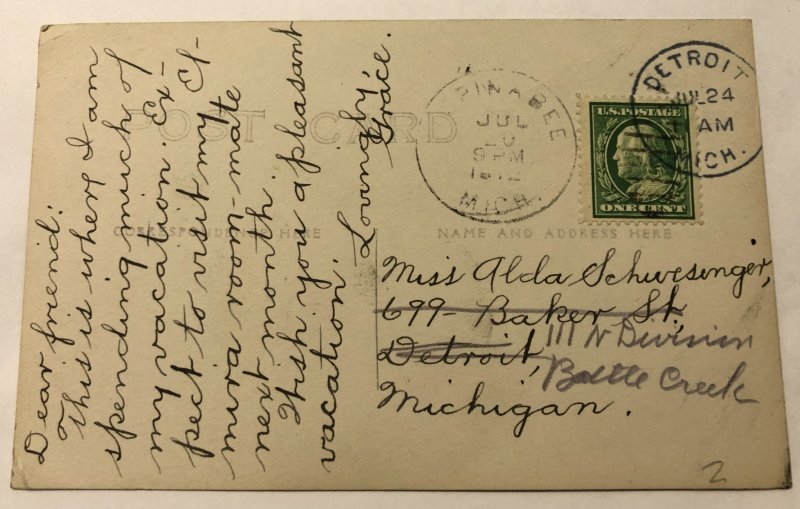 POST CARD
CORRESPONDENCE HERE
NAME AND ADDRESS HERE
Dear friend:
This is where I am
spending much of
my vacation. Ex-
pect to visit my Cl-
mira room-mate
next month.
Wish you a pleasant
vacation.
Lovingly,
Grace.
PINABEE
JUL
20
9 PM
1912
MICH.
U.S. POSTAGE
ONE CENT
DETROIT
JUL 24
AM
MICH.
Miss Alda Schwesinger,
699- Baker St.,
Detroit,
111 N Division
Battle Creek
Michigan.
2